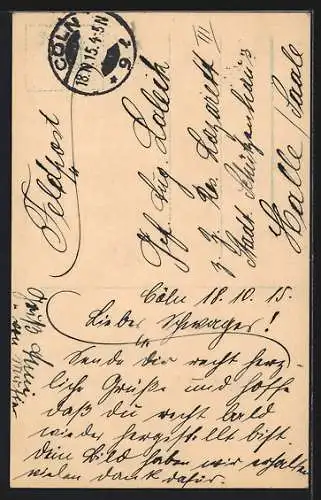 CÖLN
18.10.15.4-5N
* 9 a
Feldpost
Gef. Aug.
z. Z. Res. Lazarett III
Stadt Schützenhaus
Halle / Saale
Cöln 18.10.15.
Lieber Schwager!
Sende dir recht herz-
liche Grüße und hoffe
daß du recht bald
wieder hergestellt bist.
Dein Bild haben wir erhalten
vielen dank dafür.